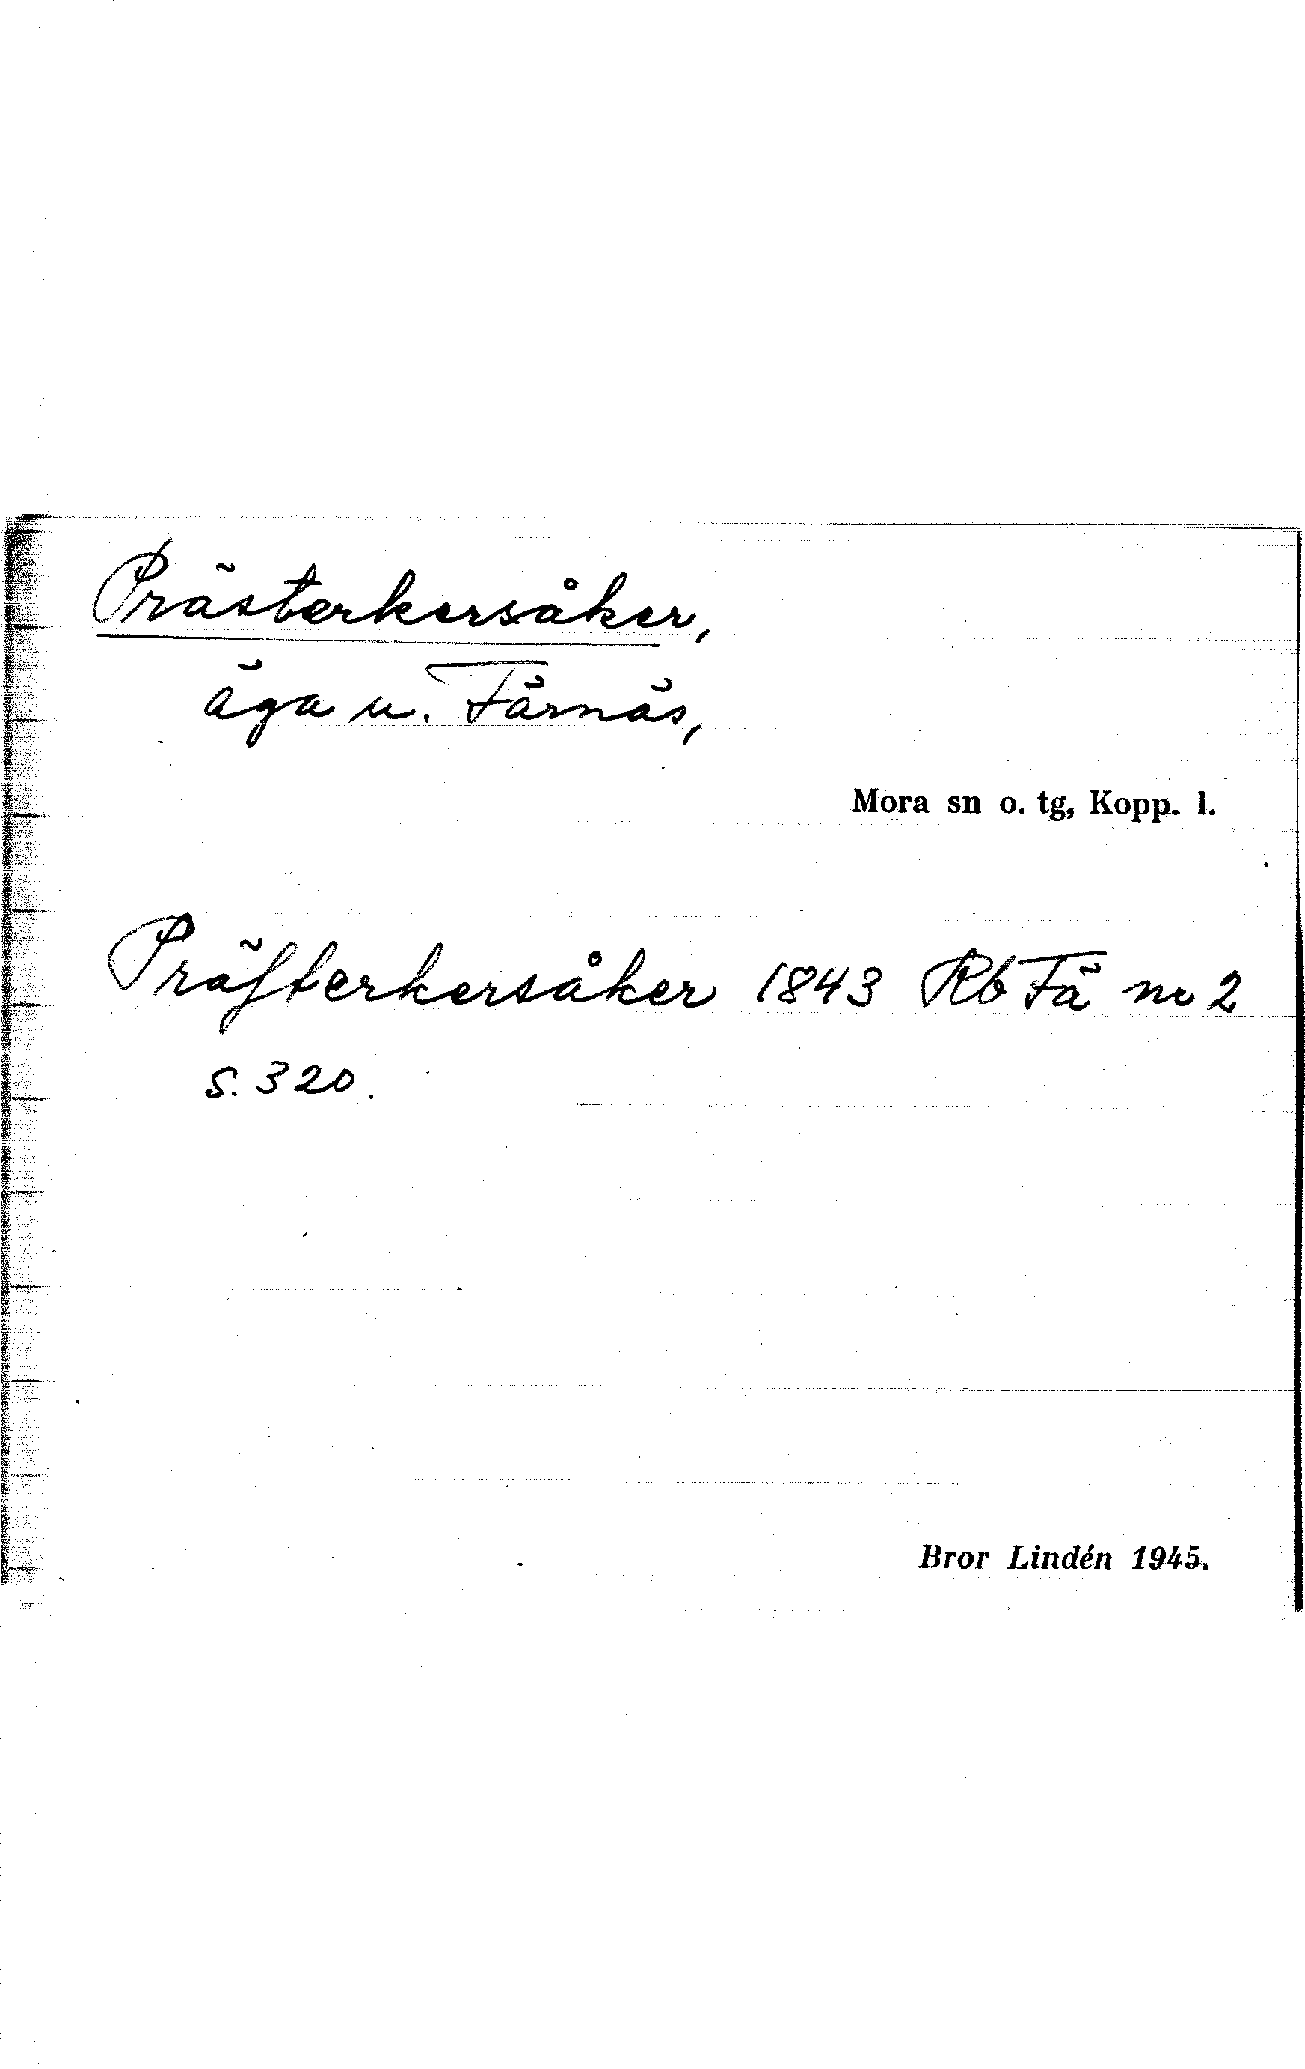 Prästerkersåker,
äga u. Färnäs,
Mora sn o. tg, Kopp. l.
Präfterkersåker 1843 Rb Fä nr 2
s. 320.
Bror Lindén 1945.